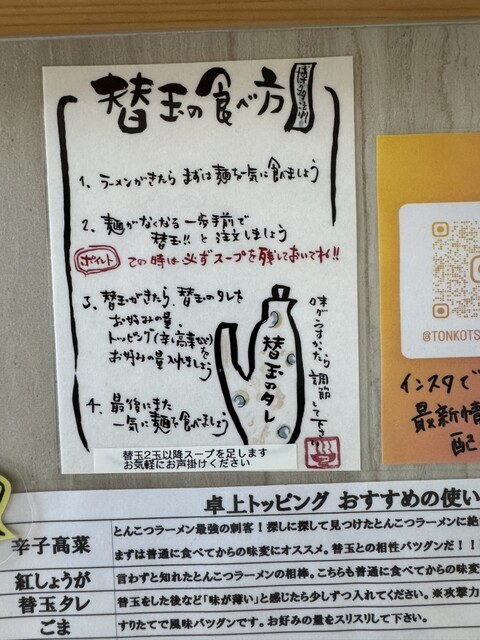 替玉の食べ方
博多流
1、ラーメンがきたら まずは麺を一気に食べましょう
2、麺がなくなる一歩手前で
替玉!! と注文しましょう
ポイント この時は必ずスープを残しておいてね!!
3、替玉がきたら、替玉のタレを
お好みの量、
トッピング(辛し高菜など)を
お好みの量入れましょう
4、最後にまた
一気に麺を食べましょう
替玉のタレ
味がうすかったら調節して下さい
替玉2玉以降スープを足します
お気軽にお声掛けください
@TONKOTS
インスタで
最新情
配
卓上トッピング おすすめの使い
辛子高菜 とんこつラーメン最強の刺客！探しに探して見つけたとんこつラーメンに絶
まずは普通に食べてからの味変にオススメ。替玉との相性バツグンだ！！
紅しょうが 言わずと知れたとんこつラーメンの相棒。こちらも普通に食べてからの味変
替玉タレ 替玉をした後など「味が薄い」と感じたら少しずつ入れてください。※攻撃力
ごま すりたてで風味バツグンです。お好みの量をスリスリして下さい。